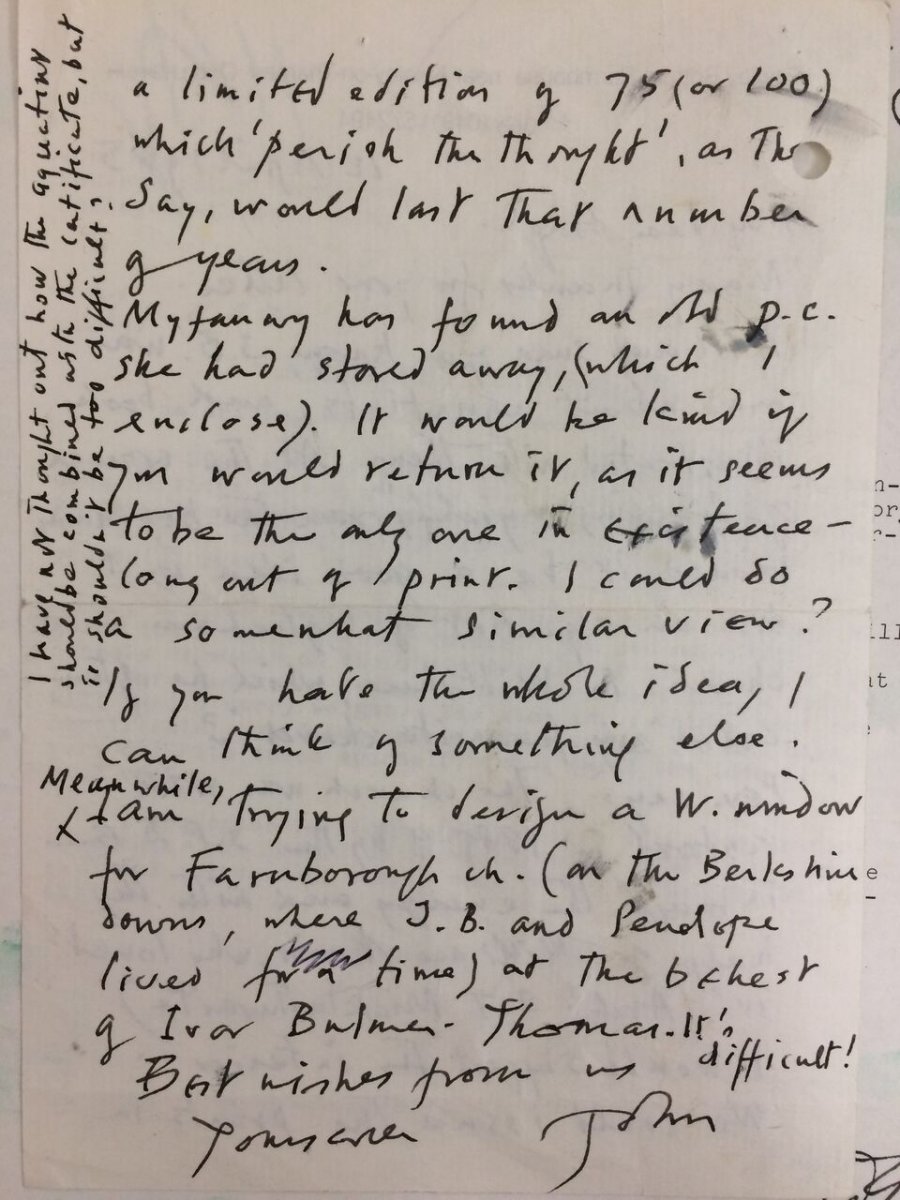 a limited edition of 75 (or 100)
which 'perish the thought', as they
say, would last that number
of years.
Myfanwy has found an old p.c.
she had stored away, (which I
enclose). It would be kind if
you would return it, as it seems
to be the only one in existence –
long out of print. I could do
a somewhat similar view?
If you hate the whole idea, I
can think of something else.
Meanwhile,
x I am trying to design a W. window
for Farnborough ch. (on the Berkshire
downs, where J.B. and Penelope
lived for a time) at the behest
of Ivor Bulmer-Thomas. It's
difficult!
Best wishes from us
Yours ever John
I have not thought out how the aquatint
should be combined with the certificate, but
it shouldn't be too difficult?